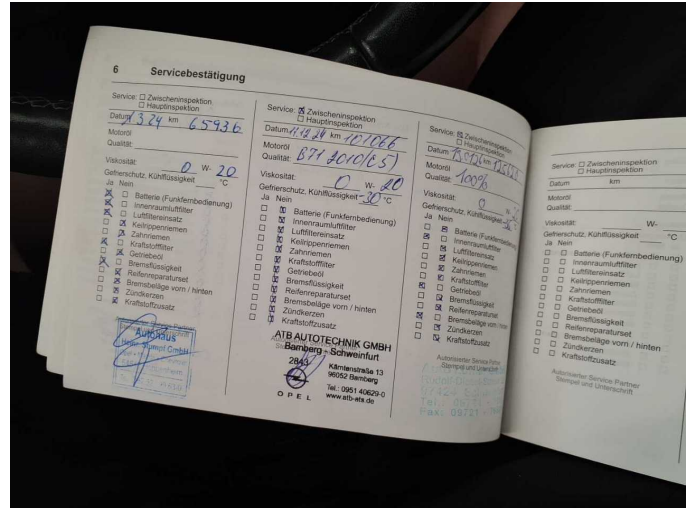 6 Servicebestätigung
Service: ☐ Zwischeninspektion
☐ Hauptinspektion
Datum 1.3.24 km 65936
Motoröl
Qualität:
Viskosität: 0 W- 20
Gefrierschutz, Kühlflüssigkeit °C
Ja Nein
☒ ☐ Batterie (Funkfernbedienung)
☒ ☐ Innenraumluftfilter
☒ ☐ Luftfiltereinsatz
☐ ☒ Keilrippenriemen
☐ ☒ Zahnriemen
☒ ☐ Kraftstofffilter
☐ ☒ Getriebeöl
☒ ☐ Bremsflüssigkeit
☐ ☒ Reifenreparaturset
☐ ☒ Bremsbeläge vorn / hinten
☐ ☒ Zündkerzen
☐ ☒ Kraftstoffzusatz
Autohaus
GmbH
Service: ☒ Zwischeninspektion
☐ Hauptinspektion
Datum 11.12.24 km 101066
Motoröl
Qualität: B71 2010 (C5)
Viskosität: 0 W- 20
Gefrierschutz, Kühlflüssigkeit -30 °C
Ja Nein
☐ ☒ Batterie (Funkfernbedienung)
☐ ☒ Innenraumluftfilter
☐ ☒ Luftfiltereinsatz
☐ ☒ Keilrippenriemen
☐ ☒ Zahnriemen
☐ ☒ Kraftstofffilter
☐ ☒ Getriebeöl
☐ ☒ Bremsflüssigkeit
☐ ☒ Reifenreparaturset
☐ ☒ Bremsbeläge vorn / hinten
☐ ☒ Zündkerzen
☐ ☒ Kraftstoffzusatz
ATB AUTOTECHNIK GMBH
Bamberg - Schweinfurt
2843
Kärntenstraße 13
96052 Bamberg
Tel.: 0951 40629-0
OPEL www.atb-ats.de
Service: ☒ Zwischeninspektion
☐ Hauptinspektion
Datum km
Motoröl
Qualität: 100%
Viskosität: 0 W-
Gefrierschutz, Kühlflüssigkeit °C
Ja Nein
☐ ☒ Batterie (Funkfernbedienung)
☒ ☐ Innenraumluftfilter
☐ ☒ Luftfiltereinsatz
☐ ☒ Keilrippenriemen
☐ ☒ Zahnriemen
☐ ☒ Kraftstofffilter
☐ ☒ Getriebeöl
☐ ☒ Bremsflüssigkeit
☐ ☒ Reifenreparaturset
☐ ☒ Bremsbeläge vorn / hinten
☐ ☒ Zündkerzen
☐ ☒ Kraftstoffzusatz
Autorisierter Service Partner
Stempel und Unterschrift
Tel.: 09721
Fax: 09721
Service: ☐ Zwischeninspektion
☐ Hauptinspektion
Datum km
Motoröl
Qualität:
Viskosität: W-
Gefrierschutz, Kühlflüssigkeit °C
Ja Nein
☐ ☐ Batterie (Funkfernbedienung)
☐ ☐ Innenraumluftfilter
☐ ☐ Luftfiltereinsatz
☐ ☐ Keilrippenriemen
☐ ☐ Zahnriemen
☐ ☐ Kraftstofffilter
☐ ☐ Getriebeöl
☐ ☐ Bremsflüssigkeit
☐ ☐ Reifenreparaturset
☐ ☐ Bremsbeläge vorn / hinten
☐ ☐ Zündkerzen
☐ ☐ Kraftstoffzusatz
Autorisierter Service Partner
Stempel und Unterschrift